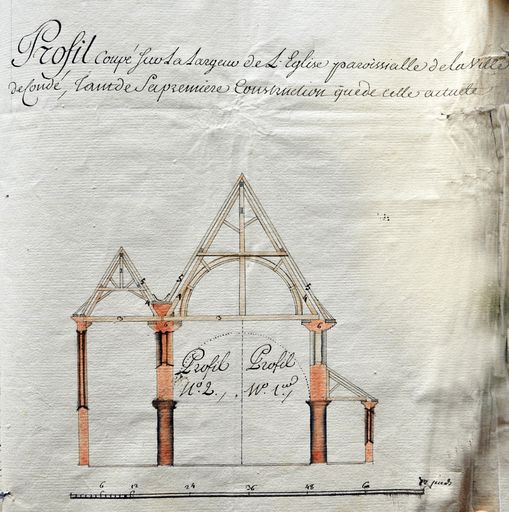 Profil Coupé sur La Largeur de L'Eglise paroissialle de la Ville
de Condé, Tant de Sa premiere Construction que de celle actuelle
5 5
4 4
3
6 6
Profil Profil
N.º 2., N.º 1.er,
6 12 24 36 48 60 72 pieds